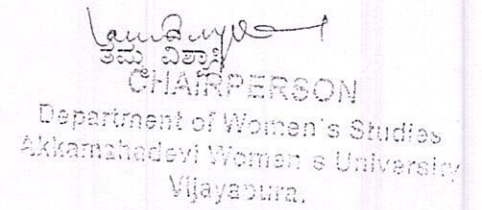 ತಮ್ಮ ವಿಶ್ವಾಸಿ
CHAIRPERSON
Department of Women's Studies
Akkamahadevi Women's University
Vijayapura.